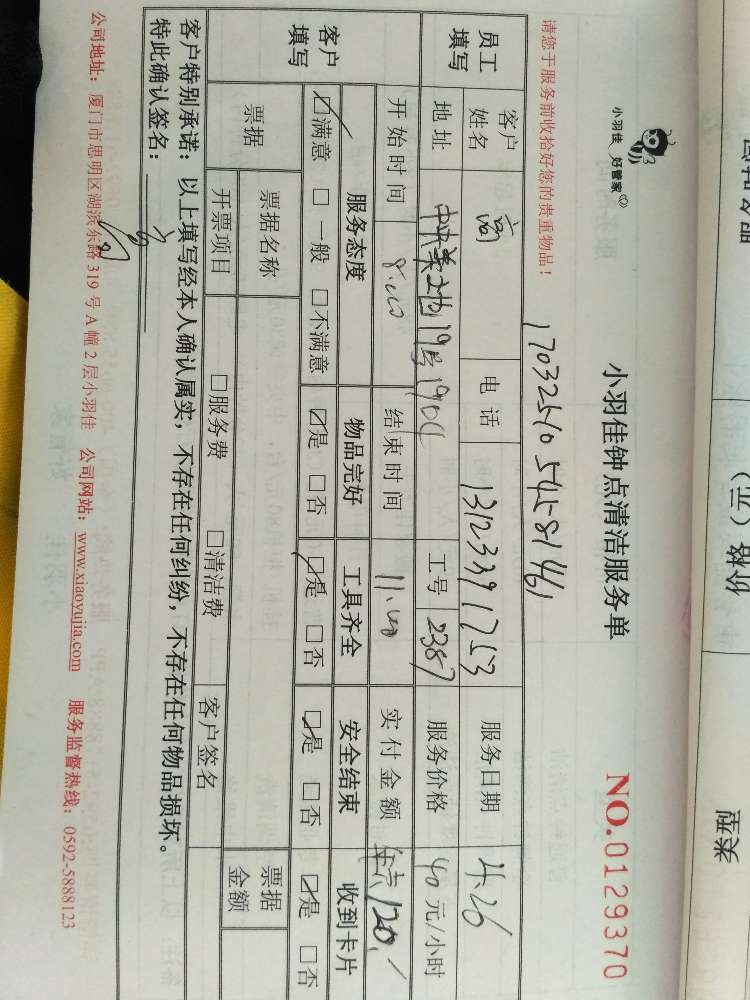 小羽佳 好管家
小羽佳钟点清洁服务单
NO.0129370
请您于服务前收拾好您的贵重物品！
员工填写
客户姓名 高 电话 13123391753 服务日期 4.26
地址 中央美地19号1904 工号 2387 服务价格 40元/小时
开始时间 8:00 结束时间 11:00 实付金额 120
客户填写
服务态度 物品完好 工具齐全 安全结束 收到卡片
☑满意 □一般 □不满意 ☑是 □否 ☑是 □否 ☑是 □否 ☑是 □否
票据 票据名称 票据金额
开票项目 □服务费 □清洁费 客户签名
客户特别承诺：以上填写经本人确认属实，不存在任何纠纷，不存在任何物品损坏。
特此确认签名：
公司地址：厦门市思明区湖滨东路319号A幢2层小羽佳 公司网站：www.xiaoyujia.com 服务监督热线：0592-5888123
价格（元）
类型